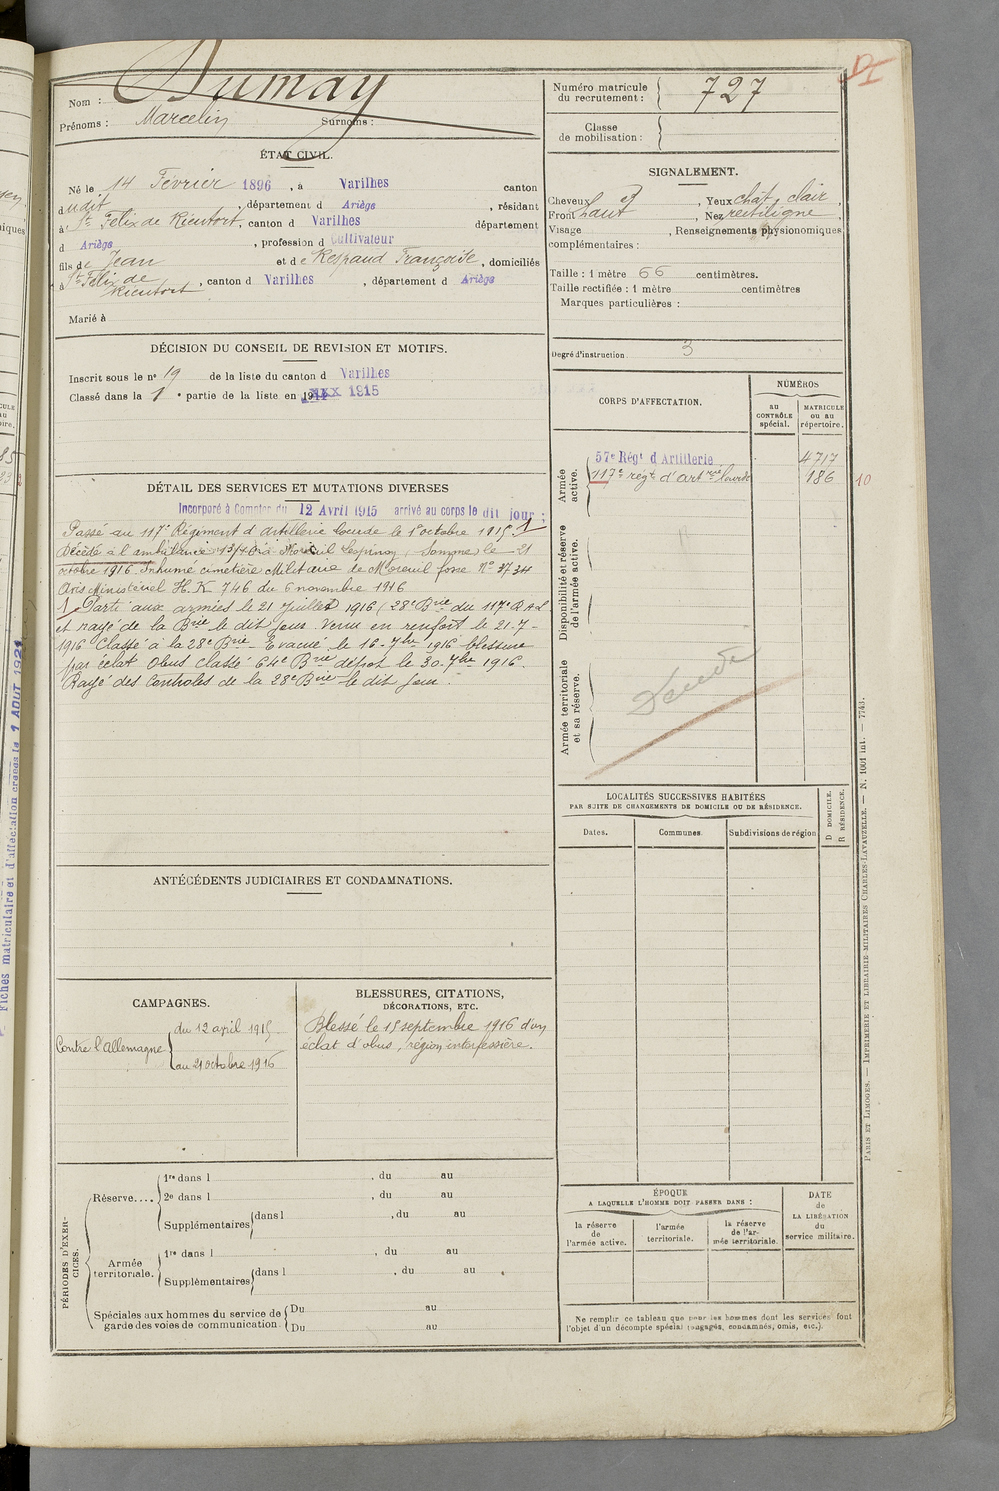 Nom : Dumay
Prénoms : Marcelin Surnoms :
ÉTAT CIVIL.
Né le 14 Février 1896, à Varilhes canton
dudit, département d Ariège, résidant
à St Félix de Rieutort, canton d Varilhes département
d Ariège, profession d Cultivateur
fils de Jean et de Respaud Françoise, domiciliés
à St Félix de Rieutort, canton d Varilhes, département d Ariège
Marié à
DÉCISION DU CONSEIL DE REVISION ET MOTIFS.
Inscrit sous le n° 19 de la liste du canton d Varilhes
Classé dans la 1e partie de la liste en 1915
DÉTAIL DES SERVICES ET MUTATIONS DIVERSES
Incorporé à Compter du 12 Avril 1915 arrivé au corps le dit jour ;
Passé au 117e Régiment d'Artillerie lourde le 1er octobre 1915. 1
Décédé à l'ambulance 13/ Moreuil Lespinoy, Somme, le 21
octobre 1916 Inhumé cimetière Militaire de Moreuil fosse N° 3734
Avis Ministériel H.K 746 du 6 novembre 1916
1 Parti aux armées le 21 Juillet 1916 (28e Brie du 117e R A L
et rayé de la Brie le dit jour Venu en renfort le 21-7-
1916 Classé à la 28e Brie Evacué le 16-7bre 1916 blessure
par éclat Obus classé 64e Brie dépôt le 30-7bre 1916.
Rayé des Controles de la 28e Brie le dit jour.
ANTÉCÉDENTS JUDICIAIRES ET CONDAMNATIONS.
CAMPAGNES.
Contre l'Allemagne
du 12 april 1915
au 21 octobre 1916
BLESSURES, CITATIONS,
DÉCORATIONS, ETC.
Blessé le 15 septembre 1916 d'un
éclat d'obus, région interfessière.
PÉRIODES D'EXERCICES.
Réserve....
1re dans l , du au
2e dans l , du au
Supplémentaires dans l , du au
Armée territoriale.
1re dans l , du au
Supplémentaires dans l , du au
Spéciales aux hommes du service de
garde des voies de communication
Du au
Du au
DI
Numéro matricule
du recrutement : 727
Classe
de mobilisation :
SIGNALEMENT.
Cheveux , Yeux chât. clair,
Front haut, Nez rectiligne,
Visage , Renseignements physionomiques
complémentaires :
Taille : 1 mètre 66 centimètres.
Taille rectifiée : 1 mètre centimètres
Marques particulières :
Degré d'instruction 3
CORPS D'AFFECTATION.
NUMÉROS
au
CONTRÔLE
spécial.
MATRICULE
ou au
répertoire.
Armée active.
57e Régt d'Artillerie 4717
117e régt d'artrie lourde 186
10
Disponibilité et réserve
de l'armée active.
Armée territoriale
et sa réserve.
LOCALITÉS SUCCESSIVES HABITÉES
PAR SUITE DE CHANGEMENTS DE DOMICILE OU DE RÉSIDENCE.
Dates. Communes Subdivisions de région
D DOMICILE.
R RÉSIDENCE.
ÉPOQUE
A LAQUELLE L'HOMME DOIT PASSER DANS :
la réserve
de
l'armée active.
l'armée
territoriale.
la réserve
de l'armée territoriale.
DATE
de
LA LIBÉRATION
du
service militaire.
Ne remplir ce tableau que pour les hommes dont les services font
l'objet d'un décompte spécial (engagés, condamnés, omis, etc.).
PARIS ET LIMOGES. — IMPRIMERIE ET LIBRAIRIE MILITAIRES CHARLES-LAVAUZELLE. — N. 1001 int. — 7743.
Fiches matriculaire et d'affectation créées le 1 AOUT 1921